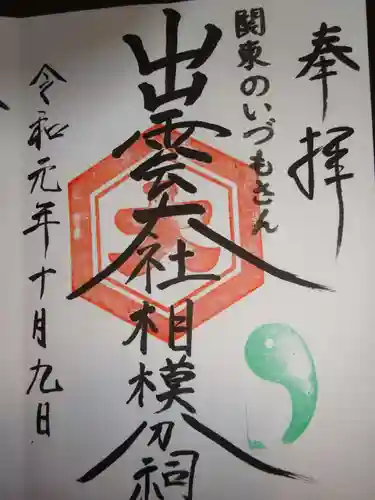 奉拝
関東のいづもさん
出雲大社相模分祠
令和元年十月九日